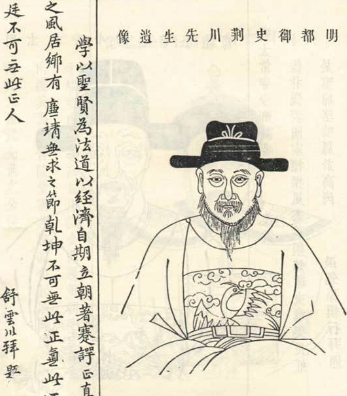 明都御史荊川先生遺像
學以聖賢為法道以經濟自期立朝著蹇諤正直
之風居鄉有廉靖無求之節乾坤不可無此正氣
廷不可無此正人
舒雲川拜題